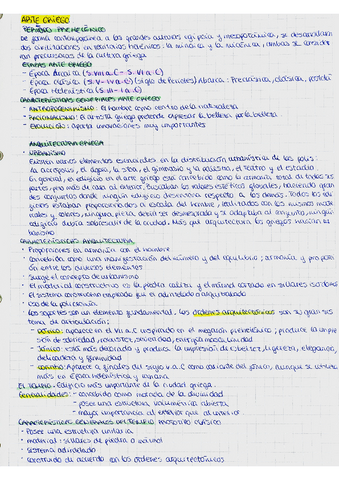 ARTE GRIEGO
PERIODO: PREHELÉNICO
De forma contemporánea a las grandes culturas egipcia y mesopotámica, se desarrollan
dos civilizaciones en territorios helénicos: la minoica y la micénica, ambas se consideran
precursoras de la cultura griega
ETAPAS ARTE GRIEGO
- Época Arcaica (s. VIII a.C - s. VI a.C)
- Época clásica (s. V - IV a.C) (Siglo de Pericles) Abarca: Preclásica, clásica,
- Época Helenística (s. III - I a.C)
CARACTERÍSTICAS GENERALES ARTE GRIEGO
- ANTROPOCENTRISMO: El hombre como centro de la naturaleza
- RACIONALISMO: El artista griego pretende expresar la belleza por la belleza
- EVOLUCIÓN: aporta innovaciones muy importantes
ARQUITECTURA GRIEGA
- URBANISMO
Existen varios elementos esenciales en la distribución urbanística de las polis:
La acrópolis, el ágora, la stoa, el gimnasio y la palestra, el teatro y el estadio
En general, el edificio en el arte griego está concebido como la armonía total de todas sus
partes, pero más de cara al exterior, buscaban los valores estéticos globales,
des conjuntos donde ningún edificio desentona respecto a los demás. Todos los
estaban proporcionados a escala del hombre, realizados con los mismos mate
riales y colores, ninguna pieza debía ser desmesurada y se adaptaban al conjunto, ningún
edificio debía sobresalir de la ciudad. Más que arquitectura los griegos hacían ur
banismo
CARACTERÍSTICAS ARQUITECTURA
- Proporciones en armonía con el hombre
- Concebido como una manifestación del número y del equilibrio; armonía y propor
ción entre los distintos elementos
- Surge el concepto de urbanismo
- El material constructivo es la piedra caliza y el mármol cortado en sillares
- El sistema constructivo empleado es el adintelado o arquitrabado
- Uso de la policromía
- Los soportes son un elemento fundamental, los órdenes arquitectónicos son su
tema de articulación:
- dórico: aparece en el VII a.C inspirado en el megarón prehelénico; produce la impre
sión de sobriedad, robustez, severidad, energía y masculinidad
- jónico: está más decorado y produce la impresión de esbeltez, ligereza, elegancia,
delicadeza y feminidad
- corintio: Aparece a finales del siglo V a.C como variante del jónico, aunque se
más en época helenística y romana
EL TEMPLO: Edificio más importante de la ciudad griega
Generalidades: - concebido como morada de la divinidad
- Posee una estructura volumétrica abierta
- mayor importancia al exterior que al interior
CARACTERÍSTICAS GENERALES DEL TEMPLO: PROTOTIPO CLÁSICO
- Posee una estructura unitaria
- material: sillares de piedra o mármol
- sistema adintelado
- construido de acuerdo con los órdenes arquitectónicos